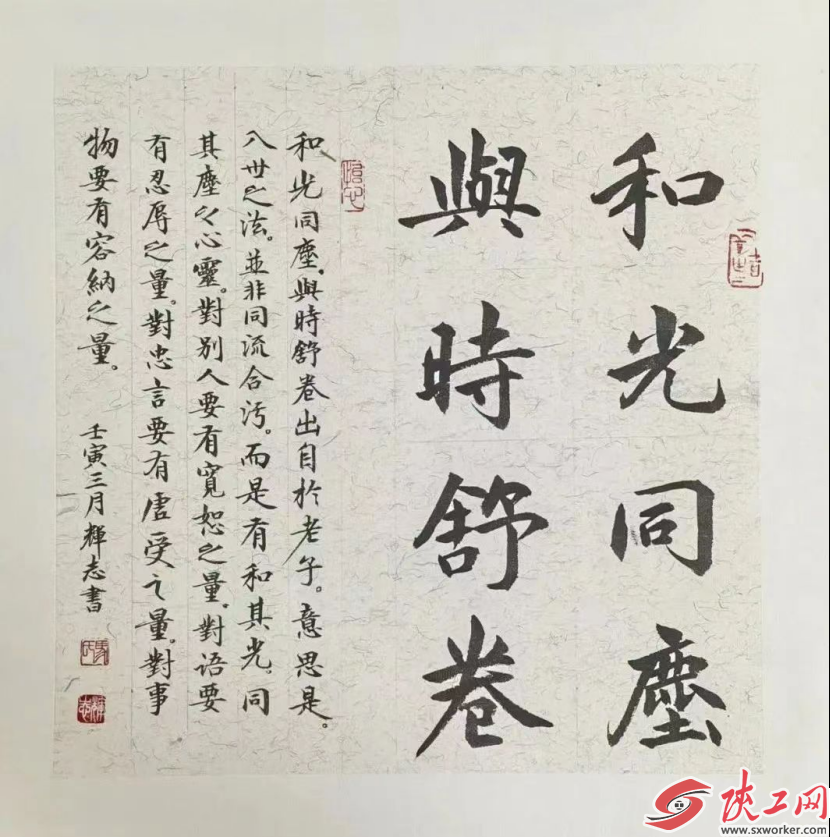 和光同塵
與時舒卷
和光同塵，與時舒卷出自於老子。意思是。
入世之法。並非同流合污。而是有和其光，同
其塵之心靈。對別人要有寬恕之量。對語要
有忍辱之量。對忠言要有虛受之量。對事
物要有容納之量。
壬寅三月輝志書
陕工网
www.sxworker.com